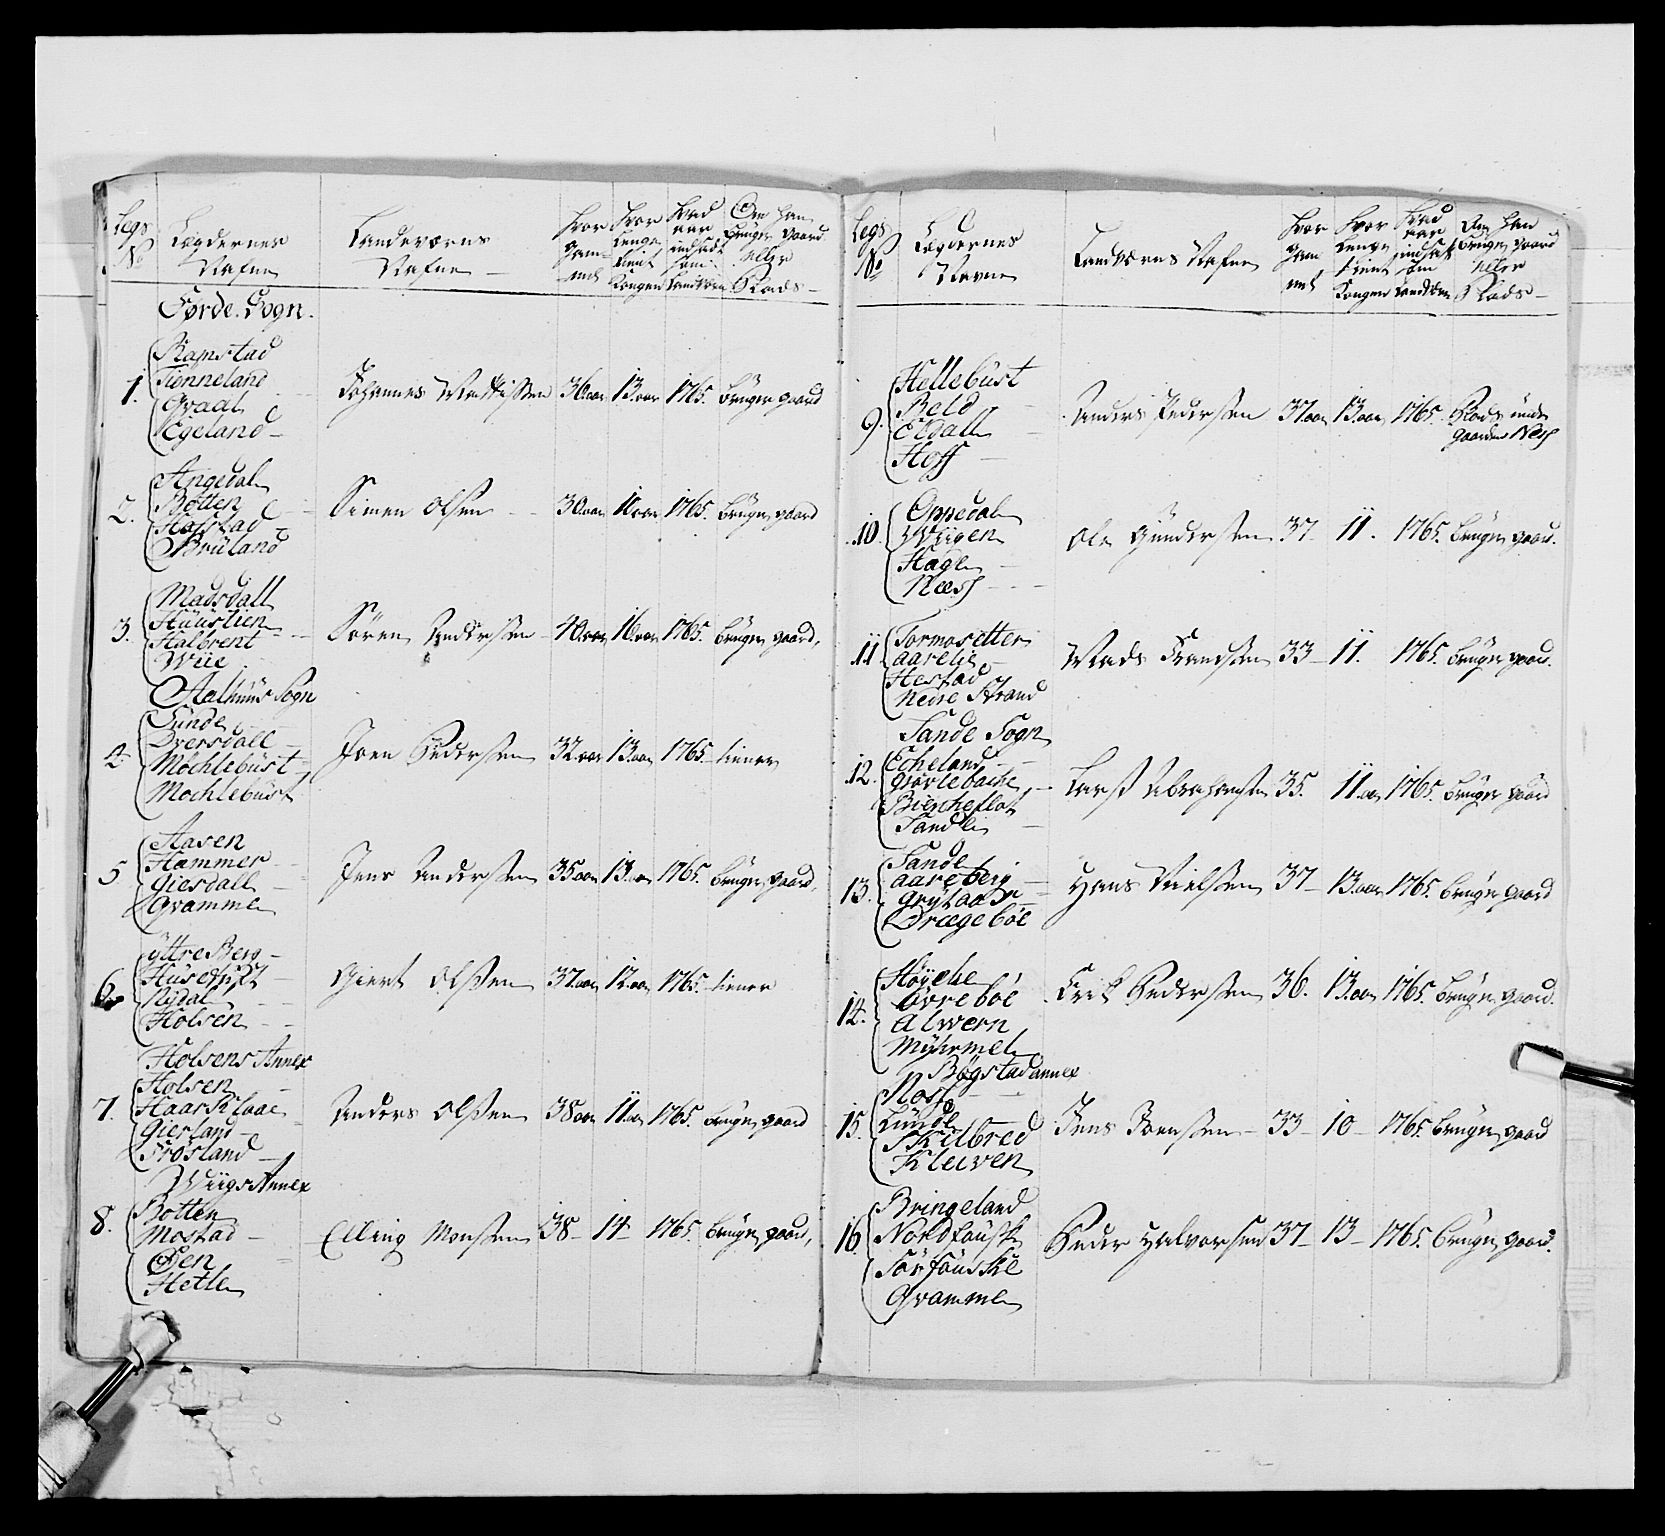 Legs No
Lægdernes Nafne
Landeværns Nafne
Hvor Gammel
Hvor Lenge tient Kongen
Hvad aar indsadt som Landværn
Om han bruger gaard eller Plads
Førde Sogn.
1. Ramstad
Tenneland
Qvaal
Egeland
Johannes Mattissen 36 aar 13 aar 1765. bruger gaard
2. Angedal
Botten
Hafstad
Bruland
Simen Olsen 30 aar 10 aar 1765. bruger gaard
3. Madsdall
Huustien
Halbrent
Wiie
Sören Andersen 40 aar 16 aar 1765. bruger gaard.
Aalhuus Sogn
4. Sunde
Dversdall
Mochlebust
Mochlebust
Joen Pedersen 32 aar 13 aar 1765. tiener
5 Aasen
Hammer
Giesdall
Qvamme
Jens Andersen 35 aar 13 aar 1765. bruger gaard.
6. yttre Berg
Husetuft
Nydal
Holsen
Giert Olsen 37 aar 12 aar 1765. tiener
Holsens Annex
7. Holsen
Haarklaae
Gierland
Frösland
Anders Olsen 38 aar 11 aar 1765. bruger gaard
Wiigs Annex
8. Botten
Mostad
Öen
Hetle
Elling Monsen 38 14 1765. bruger gaard.
Legs No
Lægdernes Navne
Landværns Nafne
Hvor Gammel
Hvor Lenge tient Kongen
Hvad aar indsat som Landværn
Om han bruger gaard eller Plads
9. Hellebust
Beld
Eldall
Hoff
Anders Pedersen 37 aar 13 aar 1765. Plads under gaarden Nes
10. Oppedal
Wiigen
Hage
Næss
Ole Gundersen 37 11. 1765. bruger gaard.
11. Tormosetter
Aarelie
Hestad
Nedre Strand
Mads Frandsen 33 11. 1765. bruger gaard.
Sande Sogn
12. Echeland
Giörlebache
Bircheflot
Sandli
Lars Abrahamsen 35. 11 aar 1765. bruger gaard
13. Sande
Aareberg
Grytaas
Drægebøe
Hans Nielsen 37 13 aar 1765. bruger gaard
14. Høyche
Øvrebøe
Alwern
Myhrmel
Erik Pedersen 36. 13 aar 1765. bruger gaard.
Bøgstad annex
15. Moss
Lunde
Skilbred
Kleiven
Jens Joensen 33 10 1765. bruger gaard
16. Bringeland
Nordfouske
Sörfouske
Qvamme
Peder Halvorsen 37 13 1765. bruger gaard.